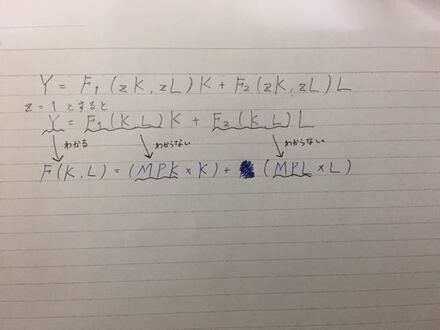 Y = F₁(zK, zL)K + F₂(zK, zL)L
z = 1 とすると
Y = F₁(K, L)K + F₂(K, L)L
わかる わからない わからない
F(K, L) = (MPK × K) + (MPL × L)